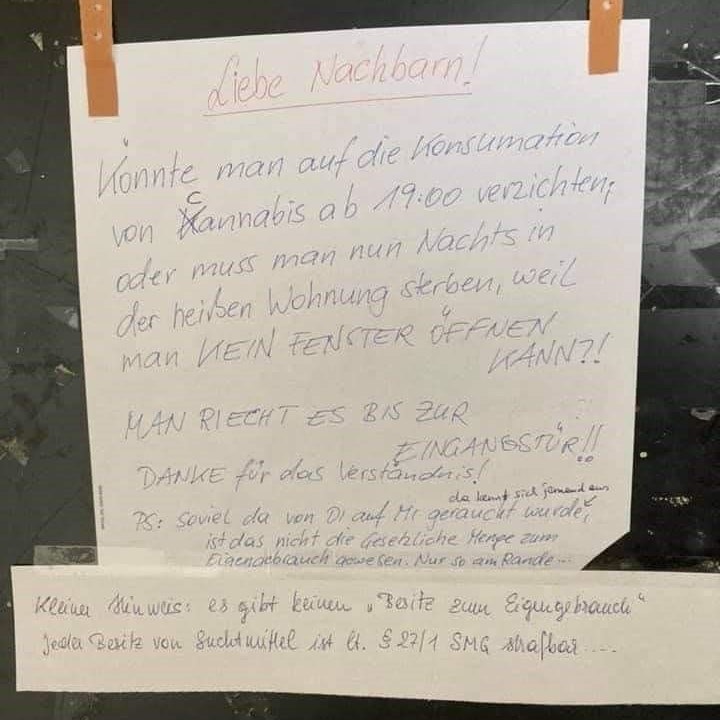 Liebe Nachbarn!
Könnte man auf die Konsumation
von Cannabis ab 19:00 verzichten;
oder muss man nun Nachts in
der heißen Wohnung sterben, weil
man KEIN FENSTER ÖFFNEN
KANN?!
MAN RIECHT ES BIS ZUR
EINGANGSTÜR!!
DANKE für das Verständnis!
da kennt sich jemand aus
PS: Soviel da von Di auf Mi geraucht wurde,
ist das nicht die Gesetzliche Menge zum
Eigengebrauch gewesen. Nur so am Rande...
Kleiner Hinweis: es gibt keinen „Besitz zum Eigengebrauch“
Jeder Besitz von Suchtmittel ist lt. § 27/1 SMG strafbar....